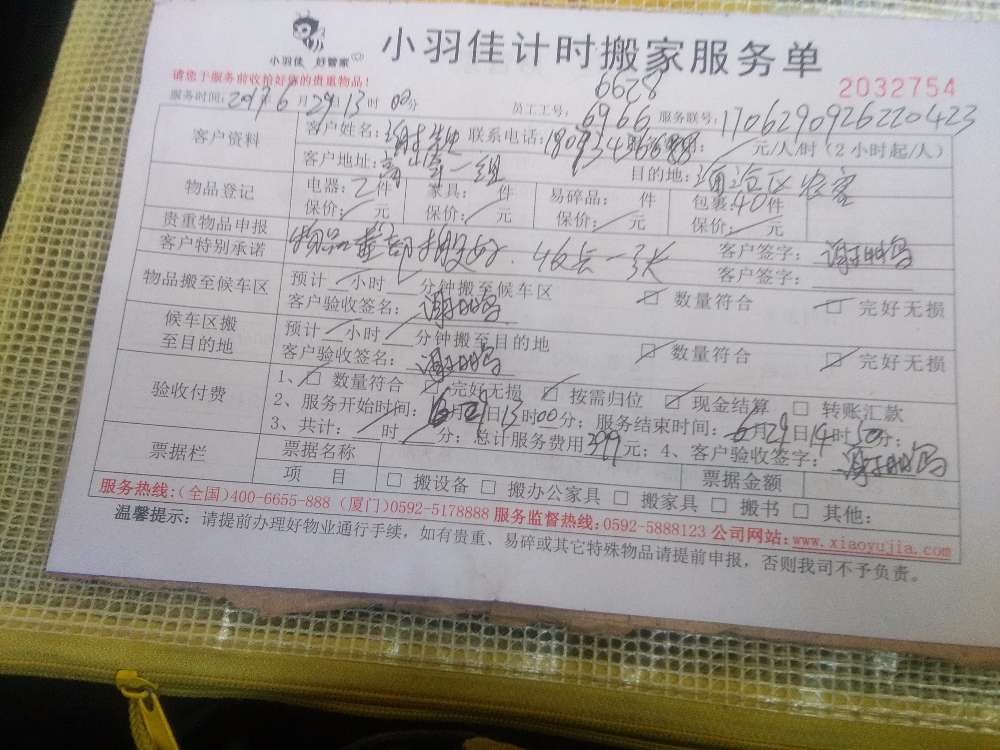 小羽佳 好管家
小羽佳计时搬家服务单
请您于服务前收拾好您的贵重物品！
2032754
6628
服务时间：2017 6月29日13时00分 员工工号：6966 服务联号：1706290926220423
客户资料 客户姓名：谢 联系电话： 元/人/时（2小时起/人）
客户地址： 一组 目的地：
物品登记 电器：2件 家具： 件 易碎品： 件 包裹40件
保价： 元 保价： 元 保价： 元 保价： 元
贵重物品申报 客户签字：谢
客户特别承诺 物品全部搬好． 一张 客户签字：
物品搬至候车区 预计 小时 分钟搬至候车区 数量符合 完好无损
客户验收签名：谢
候车区搬至目的地 预计 小时 分钟搬至目的地 数量符合 完好无损
客户验收签名：谢
验收付费 1、 数量符合 完好无损 按需归位 现金结算 转账汇款
2、服务开始时间：6月29日13时00分；服务结束时间：6月29日14时50分；
3、共计： 时 分；总计服务费用399元；4、客户验收签字：谢
票据栏 票据名称 票据金额
项 目 搬设备 搬办公家具 搬家具 搬书 其他：
服务热线：（全国）400-6655-888（厦门）0592-5178888 服务监督热线：0592-5888123 公司网站：www.xiaoyujia.com
温馨提示：请提前办理好物业通行手续，如有贵重、易碎或其它特殊物品请提前申报，否则我司不予负责。